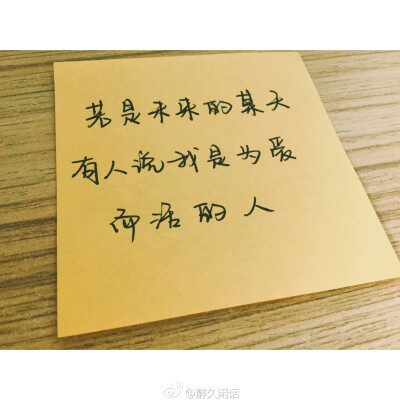 若是未来的某天
有人说我是为爱
而活的人
@醉久闲话